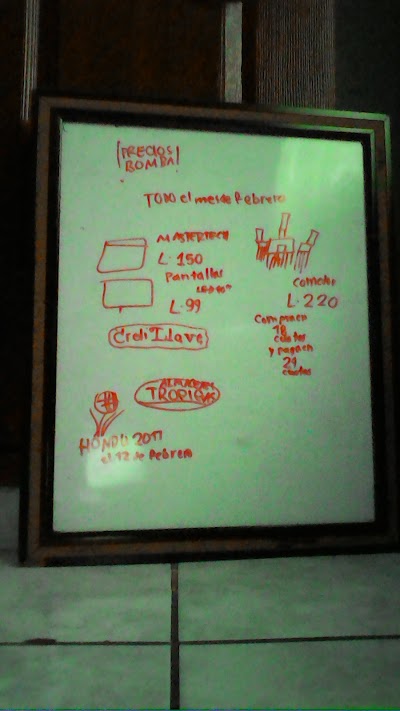 ¡PRECIOS
BOMBA!
TODO el mes de Febrero
MASTERTECH
L. 150
Pantallas
LED 50"
L. 99
CrediLlave
Comedor
L. 220
Compra en
18
cuotas
y paga en
21
cuotas
ALMACENES
TROPIGAS
HONDU 2017
el 12 de Febrero